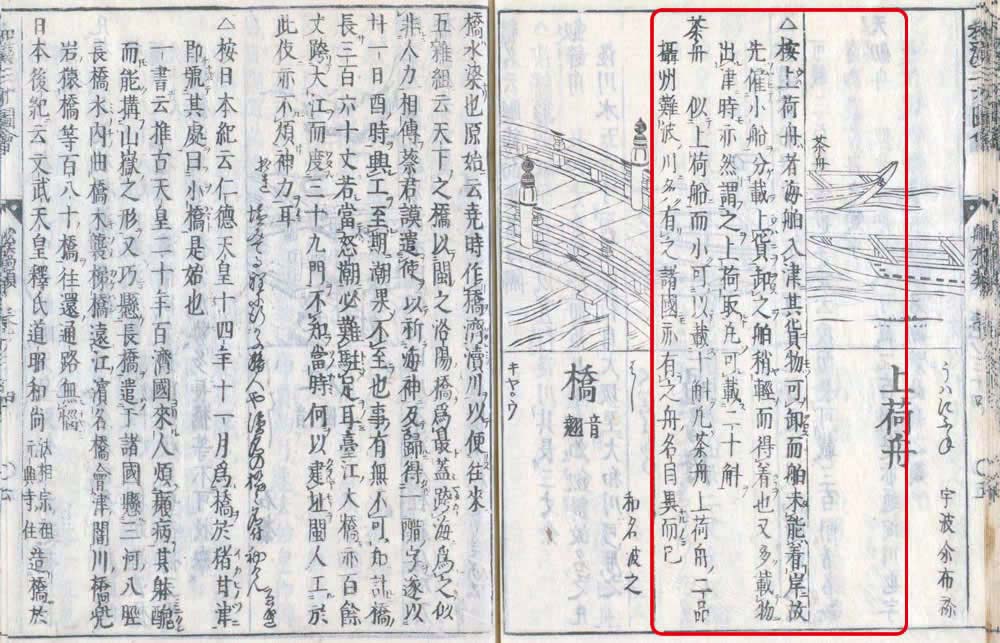 上荷舟
うはにふね
宇波尓布祢
茶舟
△按上荷舟者海舶入津其貨物可卸而舶未能着岸故
先催小船分載上貨卸之舶稍輕而得着也又多載物
出津時亦然謂之上荷取凡可載二十斛
茶舟 似上荷船而小可以載十斛凡茶舟上荷舟二品
攝州難波川多有之諸國亦有之舟名目異而已
橋
音翹
キヤ◯ウ
はし
和名波之
橋水梁也原始云堯時作橋濟瀆川以便往來
五雜組云天下之橋以閩之洛陽橋爲最蓋跨海爲之似
非人力相傳蔡君謨遣使以祈海神及歸得一醋字遂以
廿一日酉時興工至期潮果不至也事有無不可知計橋
長三百六十丈若當怒潮必難駐足耳臺江大橋亦百餘
丈跨大江而度三十九門不知當時何以建址閩人工於
此伎亦不煩神力耳
△按日本紀云仁德天皇十四年十一月爲橋於猪甘津
即號其處曰小橋是始也
一書云推古天皇二十年百濟國來人煩癩病其躰醜
而能搆山嶽之形又巧懸長橋遣于諸國懸三河八脛
長橋水内曲橋木襲梯橋遠江濱名橋會津闇川橋兜
岩猿橋等百八十橋往還通路無惱
日本後紀云文武天皇釋氏道昭和尚 法相宗祖元興寺住 造橋於